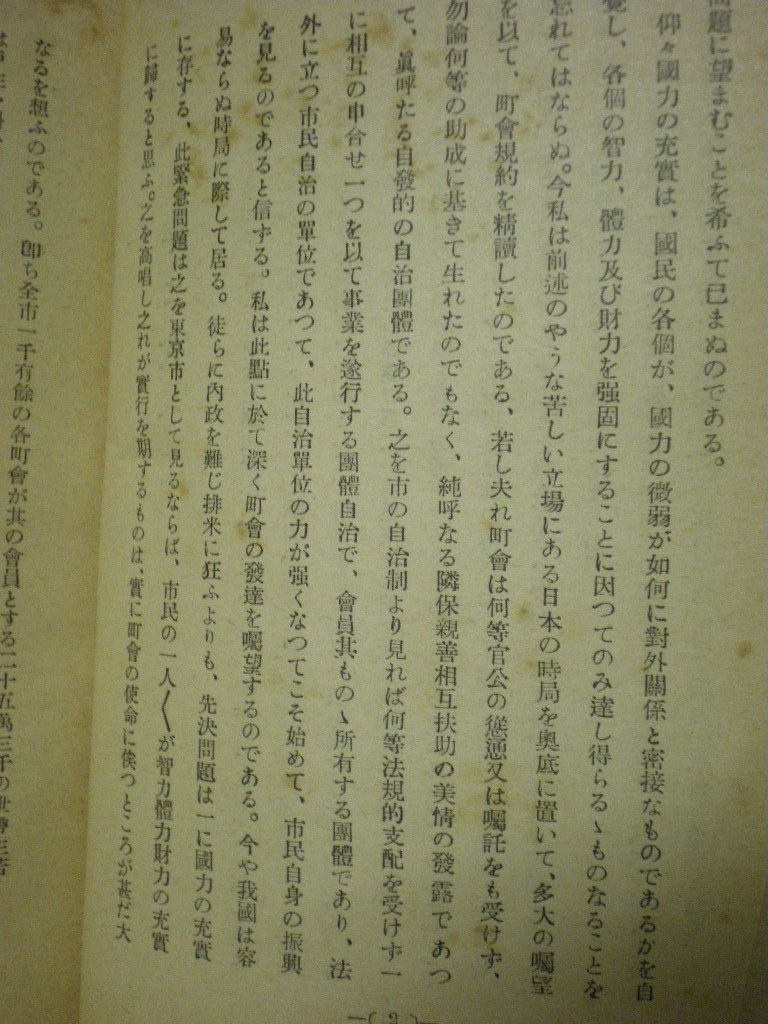 問題に望まむことを希ふて已まぬのである。
仰々國力の充實は、國民の各個が、國力の微弱が如何に對外關係と密接なものであるかを自
覺し、各個の智力、體力及び財力を强固にすることに因つてのみ達し得らるゝものなることを
忘れてはならぬ。今私は前述のやうな苦しい立場にある日本の時局を奥底に置いて、多大の囑望
を以て、町會規約を精讀したのである、若し夫れ町會は何等官公の慫慂又は囑託をも受けず、
勿論何等の助成に基きて生れたのでもなく、純呼なる隣保親善相互扶助の美情の發露であつ
て、眞呼たる自發的の自治團體である。之を市の自治制より見れば何等法規的支配を受けず一
に相互の申合せ一つを以て事業を遂行する團體自治で、會員其ものゝ所有する團體であり、法
外に立つ市民自治の單位であつて、此自治單位の力が强くなつてこそ始めて、市民自身の振興
を見るのであると信ずる。私は此點に於て深く町會の發達を囑望するのである。今や我國は容
易ならぬ時局に際して居る。徒らに內政を難じ排米に狂ふよりも、先決問題は一に國力の充實
に存する、此緊急問題は之を東京市として見るならば、市民の一人〱が智力體力財力の充實
に歸すると思ふ。之を高唱し之れが實行を期するものは、實に町會の使命に俟つところが甚だ大
なるを想ふのである。卽ち全市一千有餘の各町會が其の會員とする二十五萬三千の世帶主が
—( 3 )—